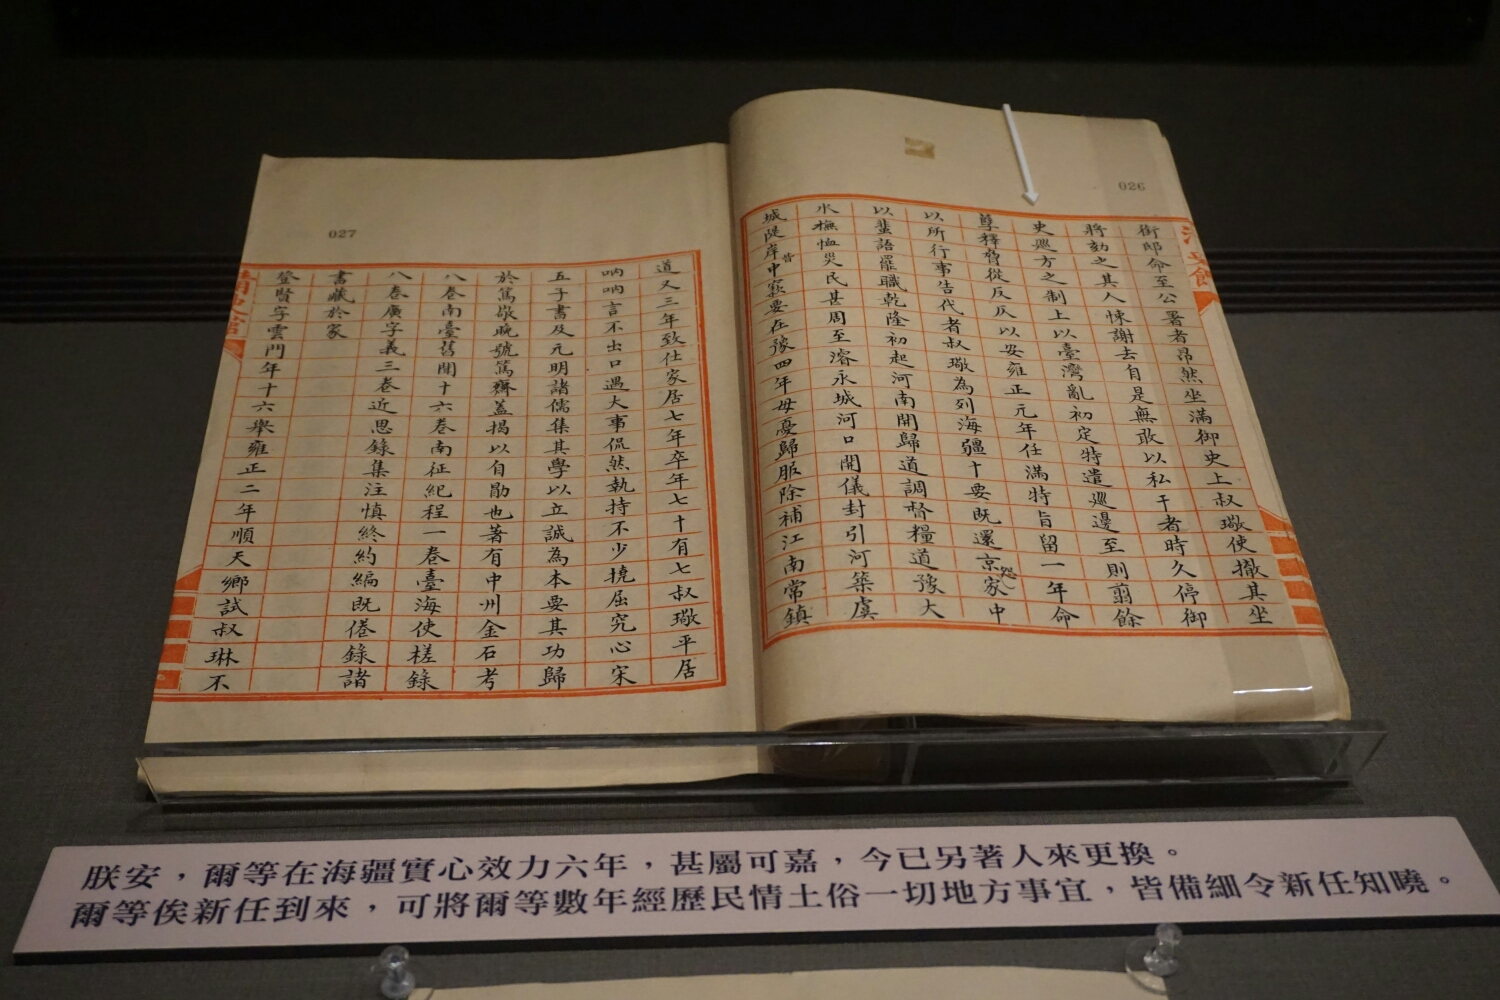 026
銜邸命至公署者昂然坐滿御史上叔璥使撤其坐
將劾之其人悚謝去自是無敢以私干者時久停御
史巡方之制上以臺灣亂初定特遣巡邊至則翦餘
孽釋脅從反仄以安雍正元年任滿特旨留一年命
以所行事告代者叔璥為列海疆十要既還京家中
以蜚語罷職乾隆初起河南開歸道調督糧道豫大
水撫恤災民甚周至濬永城河口開儀封引河築虞
城隄岸皆中窾要在豫四年母憂歸服除補江南常鎮
027
道又三年致仕家居七年卒年七十有七叔璥平居
吶吶言不出口遇大事侃然執持不少撓屈究心宋
五子書及元明諸儒集其學以立誠為本要其功歸
於篤敬晚號篤齋蓋揭以自勖也著有中州金石考
八卷南臺舊聞十六卷南征紀程一卷臺海使槎錄
八卷廣字義三卷近思錄集注慎終約編既倦錄諸
書藏於家
登賢字雲門年十六舉雍正二年順天鄉試叔琳不
朕安，爾等在海疆實心效力六年，甚屬可嘉，今已另著人來更換。
爾等俟新任到來，可將爾等數年經歷民情土俗一切地方事宜，皆備細令新任知曉。